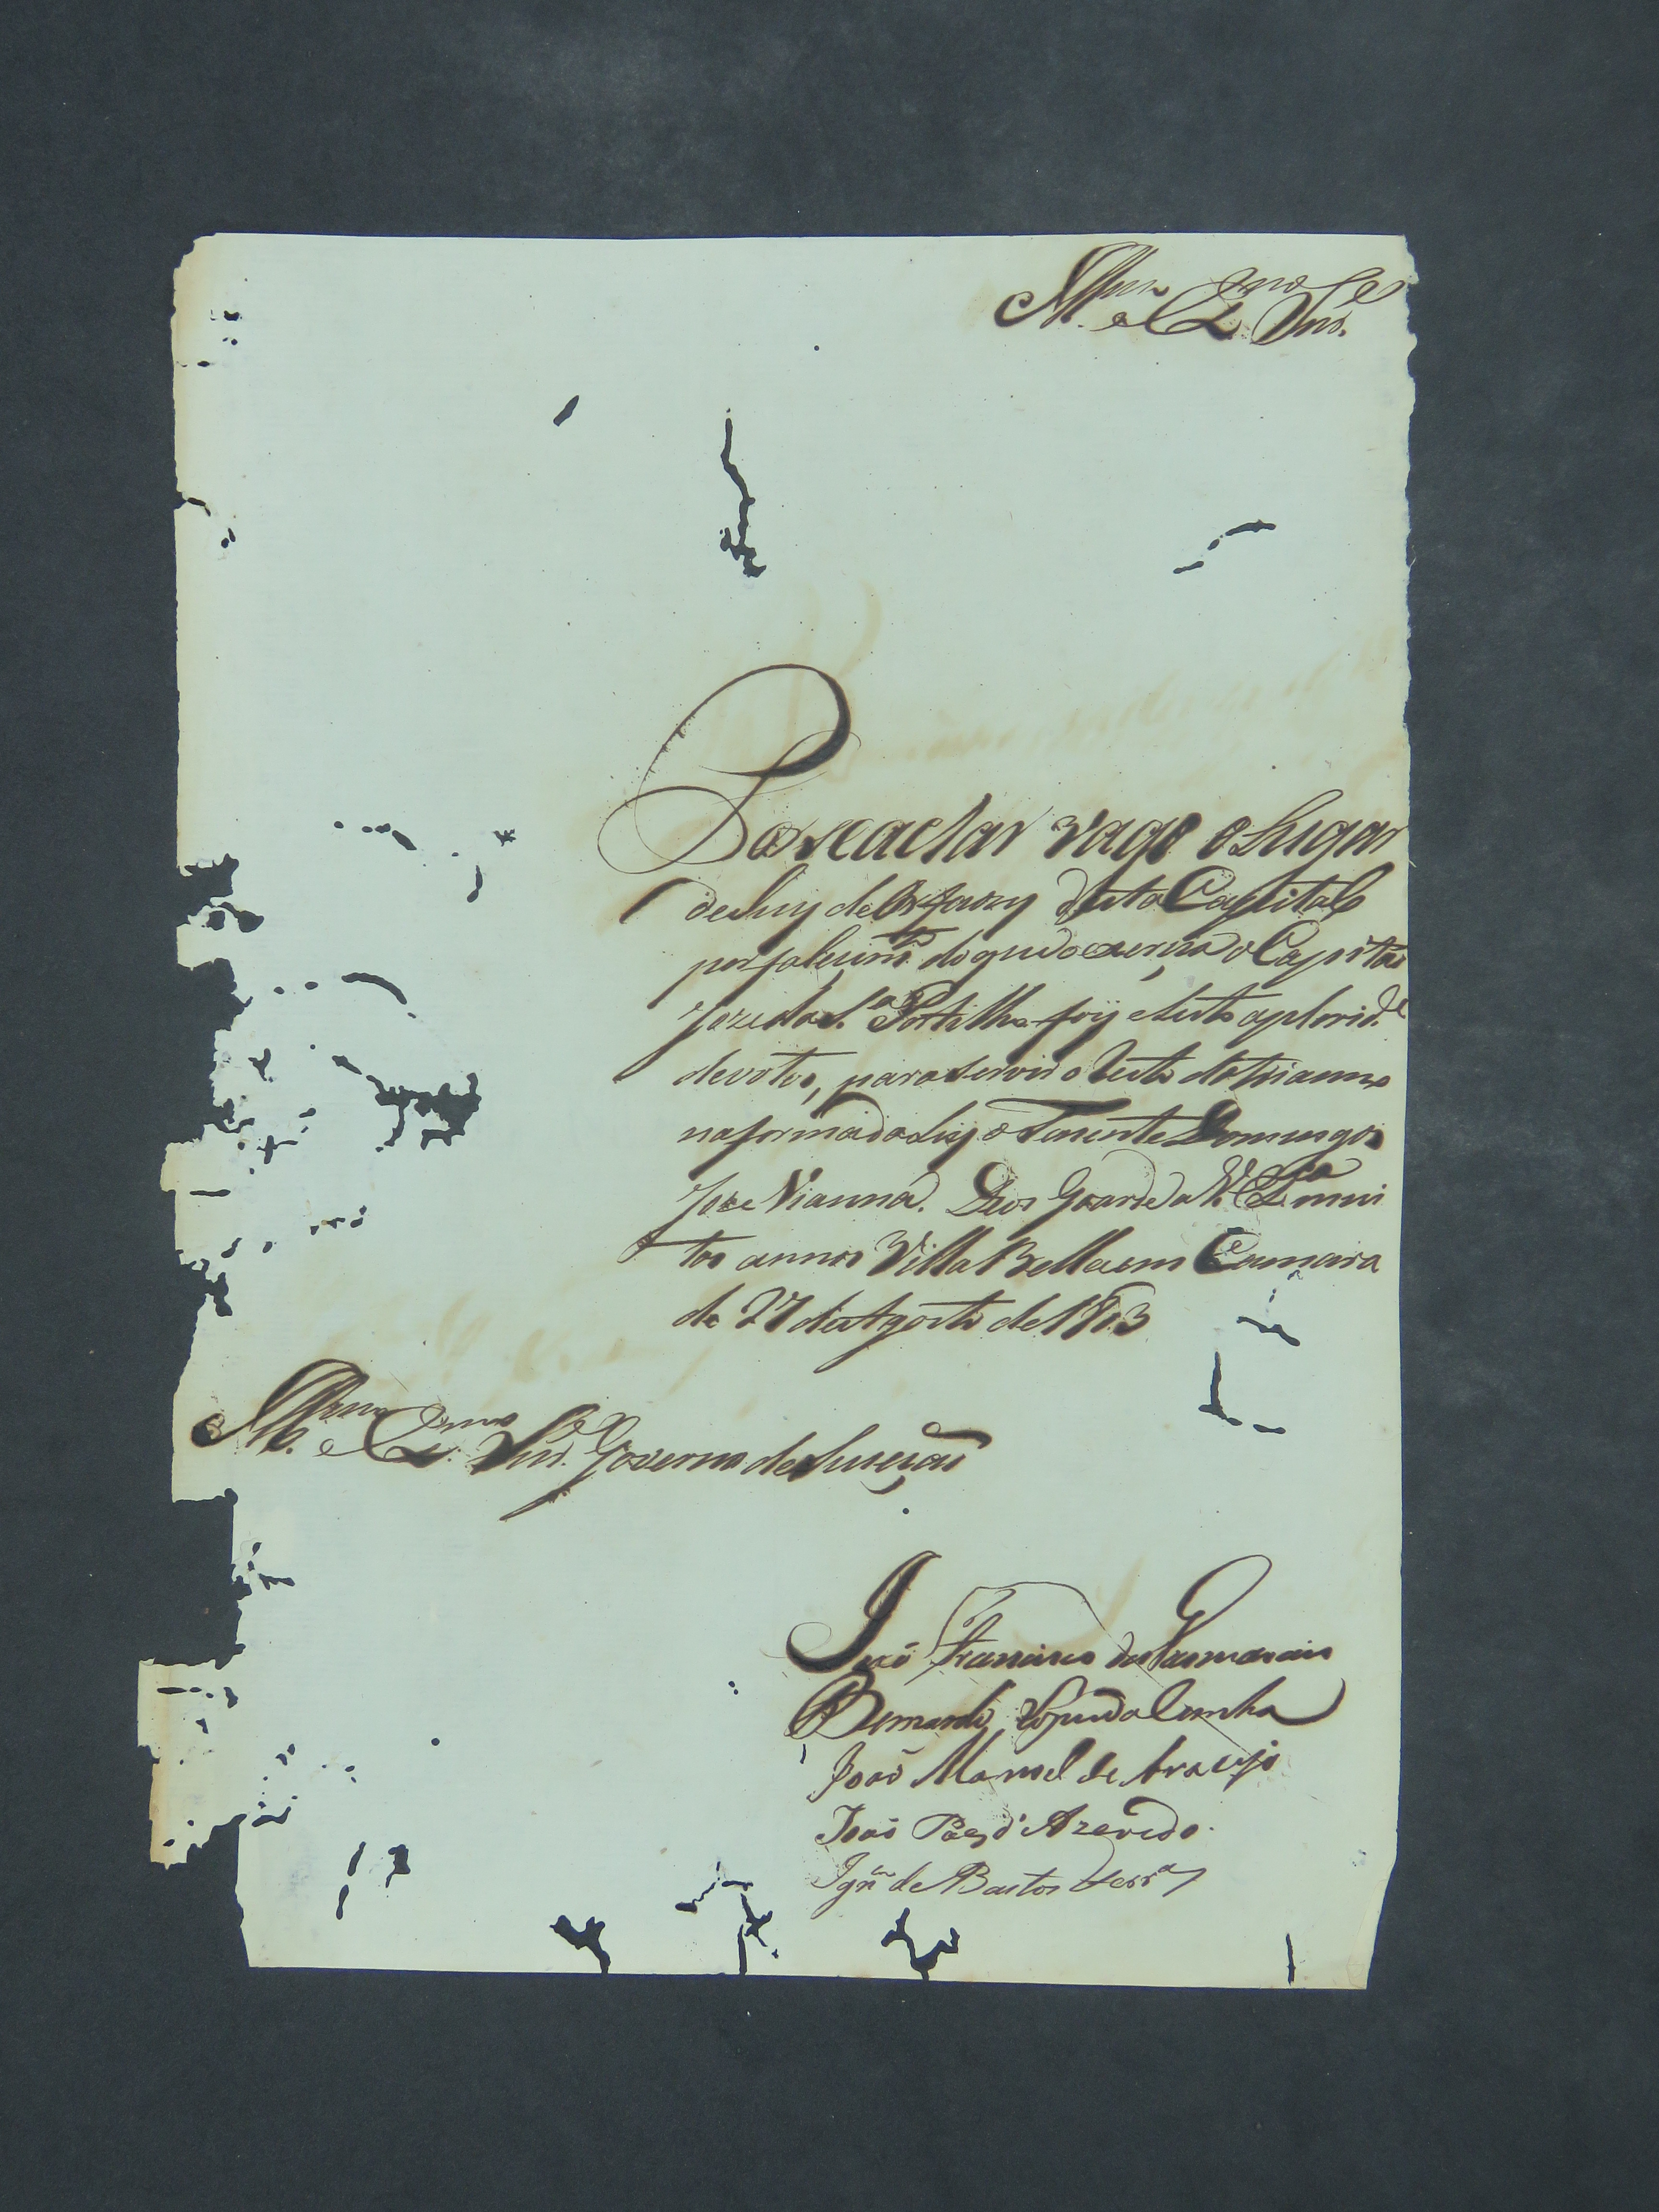 Illmos. e Exmos. Snres.
Por se achar vago o Lugar
de Juiz de Orfaons desta Capital
por falecimto. do que do exercia o Capitão
Joze da Sa. Portilho foy eleito a plurid.e
de votos, para servir o resto do trianno
na forma da Ley o Tenente Domingos
Joze Vianna. Deos Guarde a V. Exa. mui
tos annos Villa Bella em Camara
de 27 de Agosto de 1803
Illmos. e Exmos. Snres. Governo de Suceção
João Francisco dos Guimarais
Bernardo Lopes da Cunha
João Manoel de Araujo
João Paes d'Azevedo.
Ign.co de Bastos Ferra.